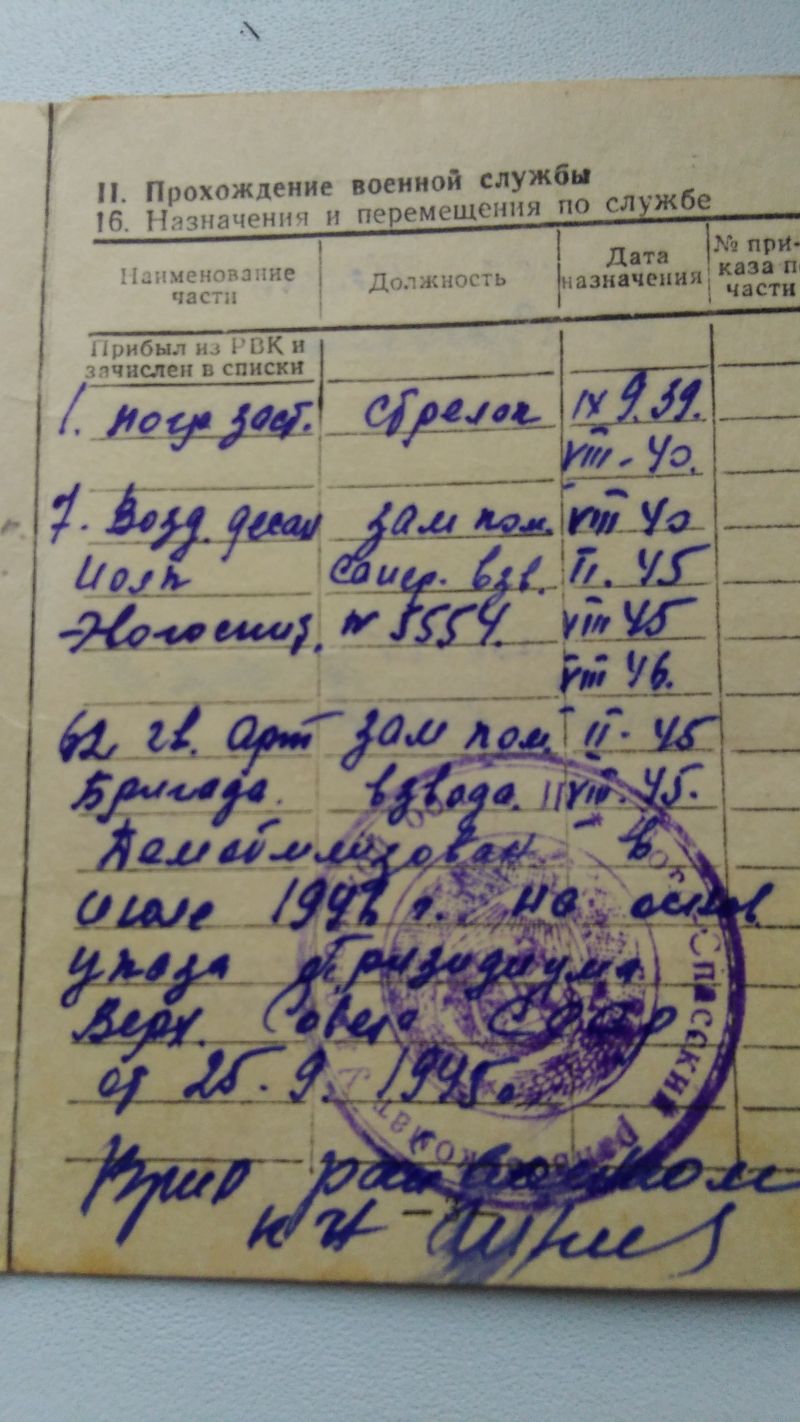 II. Прохождение военной службы
16. Назначения и перемещения по службе
Наименование части
Должность
Дата назначения
№ при-
каза по
части
Прибыл из РВК и
зачислен в списки
1. погр заст. стрелок IX 9.39.
VIII - 40.
7. Возд. десан зам пом. VIII 40
сапер. взв. II. 45
Эвогоспит. № 5554. VIII 45
VIII 46.
62 гв. Арт зам пом. II - 45
Бригада. взвода. VIII - 45.
Демобилизован в
июле 194 г. на основ
указа Призидиума
Верх. Совета СССР
от 25. 9. 1945г
Врио райвоенком
к-н
Спасский райвоенкомат